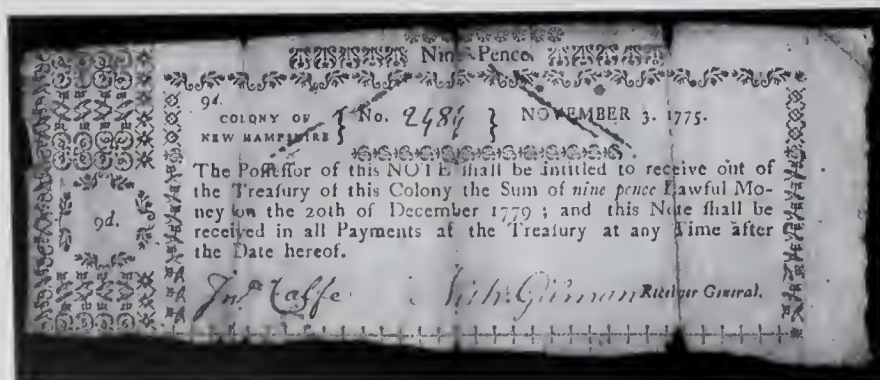 Nine Pence.
9d.
COLONY OF
NEW HAMPSHIRE } No. 2484 } NOVEMBER 3. 1775.
The Poſſeſſor of this NOTE ſhall be intitled to receive out of
the Treaſury of this Colony the Sum of nine pence Lawful Mo-
ney on the 20th of December 1779 ; and this Note ſhall be
received in all Payments at the Treaſury at any Time after
the Date hereof.
9d.
Jnº Taffe Nichs Gilman Receiver General.